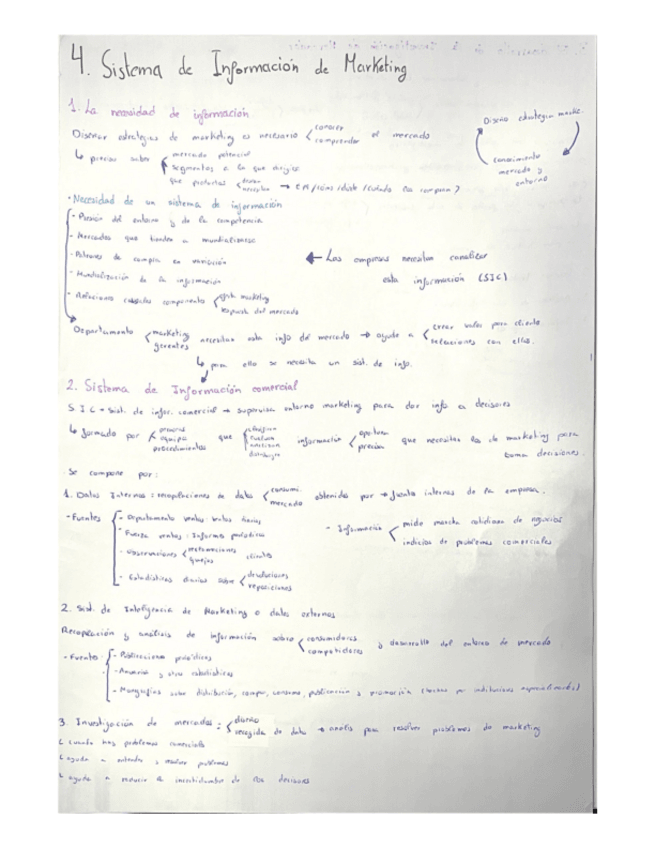 4. Sistema de Información de Marketing
1. La necesidad de información
Diseñar estrategias de marketing es necesario conocer comprender el mercado
Diseño estrategia marke.
↳ preciso saber mercado potencial
segmentos a los que dirigirse
que productos desean necesitan →
conocimiento mercado y entorno
· Necesidad de un sistema de información
- Presión del entorno y de la competencia
- Mercados que tienden a mundializarse
- Patrones de compra en variación
← Las empresas necesitan canalizar
esta información (SIC)
- Mundialización de la información
- Relaciones componente marketing
respuesta del mercado
Departamento marketing gerentes necesitan esta info del mercado → ayuda a crear valor para cliente relaciones con ellos.
↳ para ello se necesita un sist. de info.
2. Sistema de Información comercial
S.I.C = sist. de infor. comercial → supervisa entorno marketing para dar info a decisores
↳ formado por personas equipo procedimientos que analizan distribuyen información oportuna precisa que necesitan los de marketing para
tomar decisiones.
Se compone por:
1. Datos Internos: recopilaciones de datos consumi. mercado obtenidos por → fuentes internas de la empresa.
- Fuentes - Departamento ventas: ventas diarias
- Fuerza ventas: Informes periódicos
- Observaciones reclamaciones quejas clientes
- Estadísticas diarias sobre devoluciones reposiciones
- Información mide marcha cotidiana de negocios
indicios de problemas comerciales
2. Sist. de Inteligencia de Marketing o datos externos
Recopilación y análisis de información sobre consumidores competidores y desarrollo del entorno de mercado
- Fuentes - Publicaciones periódicas
- Anuarios y otras estadísticas
- Monografías sobre distribución, compra, consumo, publicación y promoción (hechas por instituciones especializadas)
3. Investigación de mercados: diseño
recogida de datos → analisis para resolver problemas de marketing
↳ cuando hay problemas comerciales
↳ ayuda a entender y resolver problemas
↳ ayuda a reducir la incertidumbre de los decisores